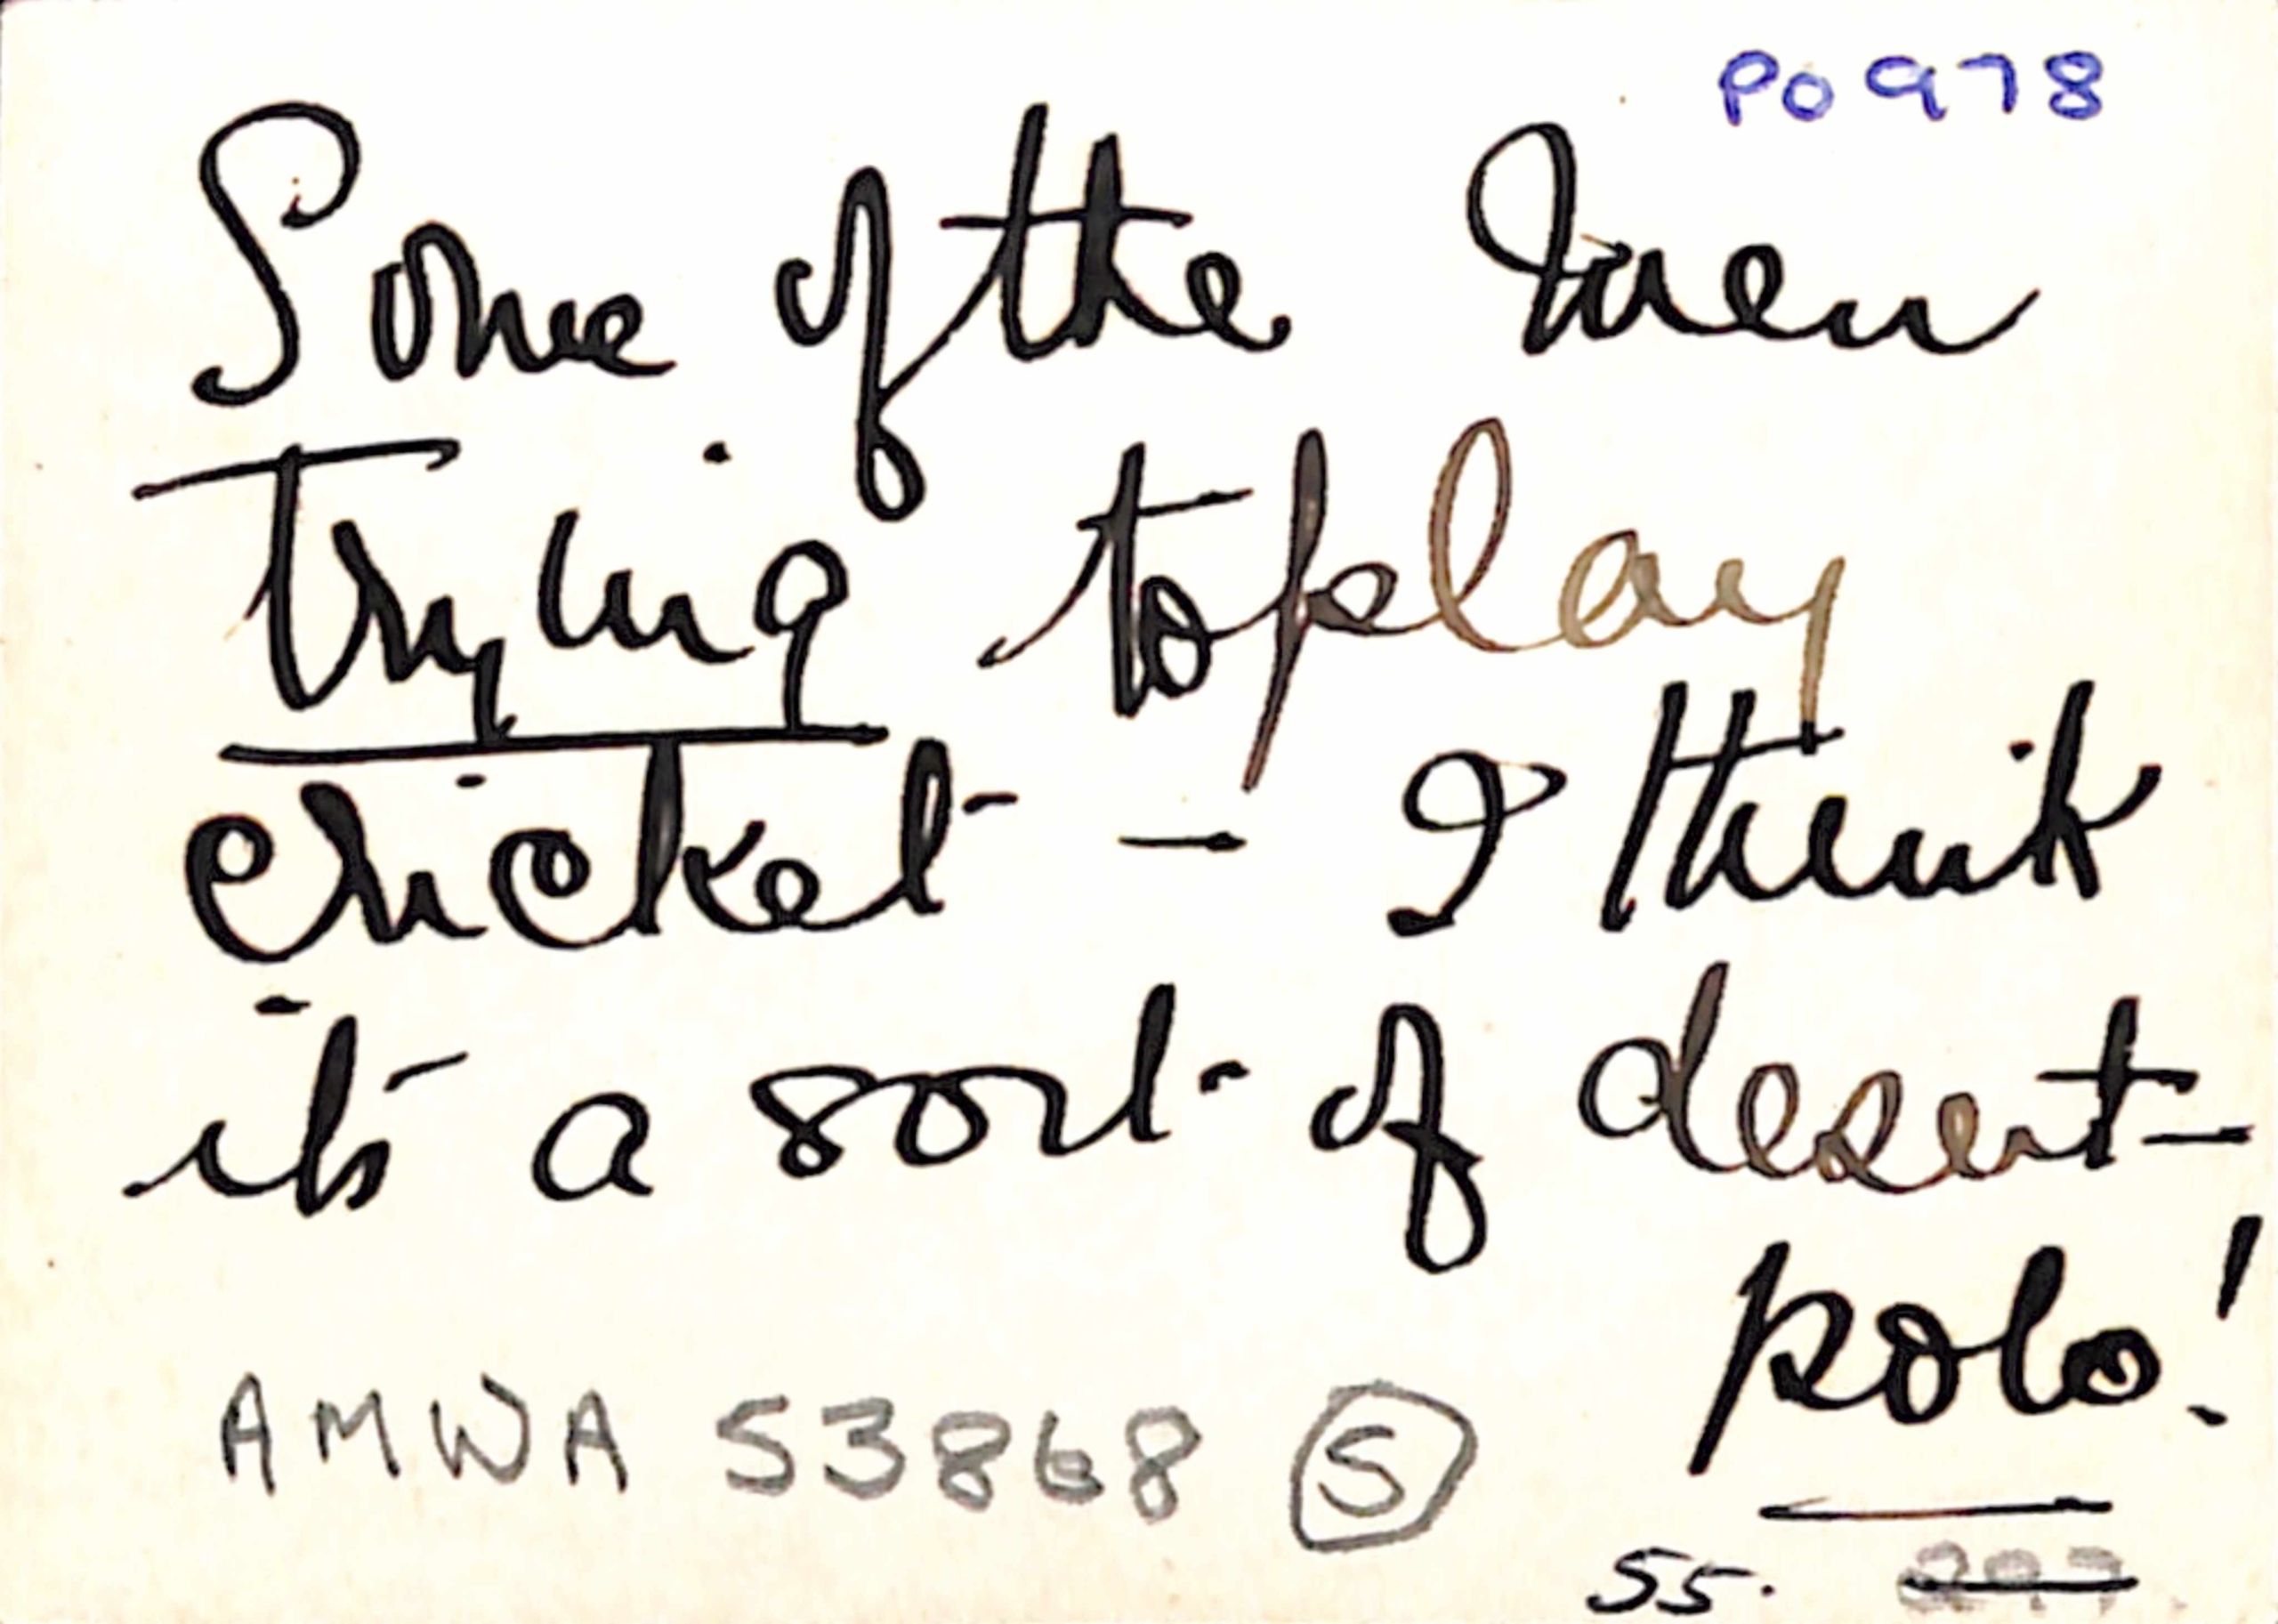 PO978
Some of the men
trying to play
cricket – I think
it's a sort of desert–
polo!
AMWA 53868 S
55.